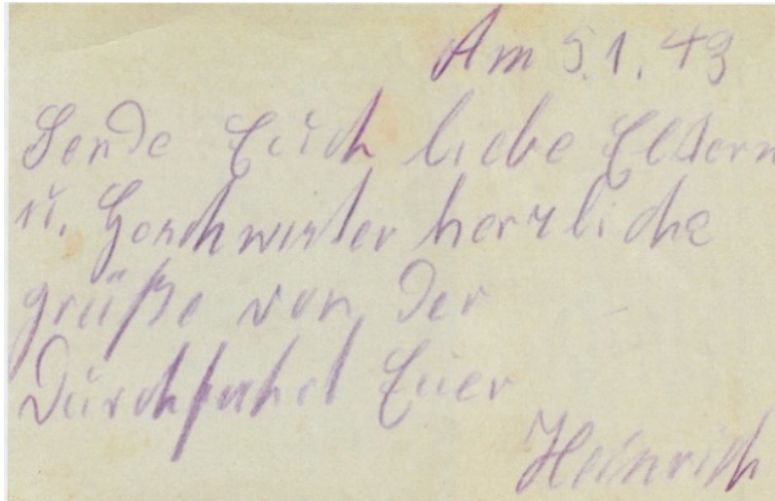 Am 5.1.43
Sende Euch liebe Eltern
u. Geschwister herzliche
grüße von der
Durchfahrt Euer
Heinrich